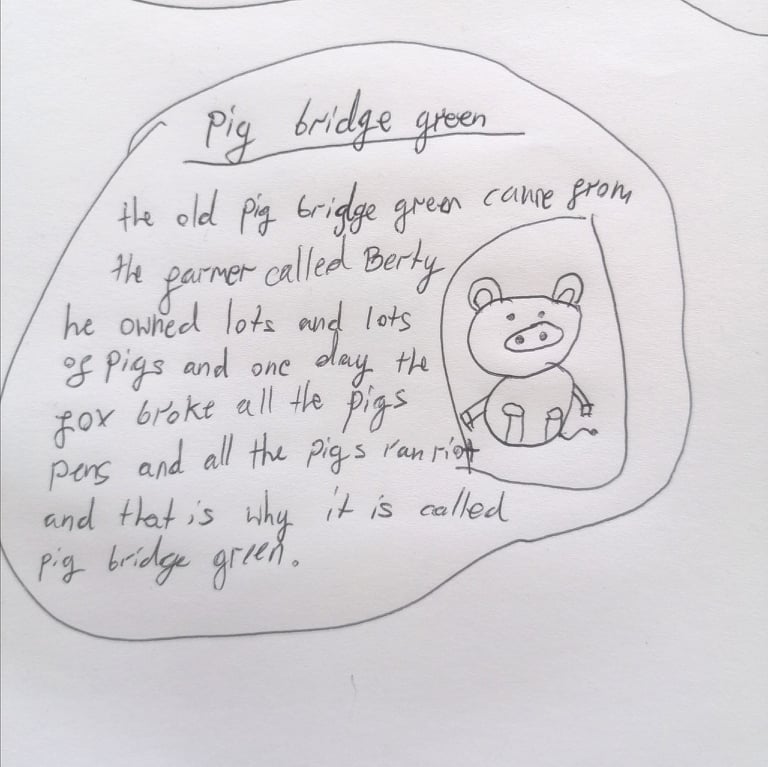 Pig bridge green
the old pig bridge green came from
the farmer called Berty
he owned lots and lots
of pigs and one day the
fox broke all the pigs
pens and all the pigs ran riot
and that is why it is called
pig bridge green.